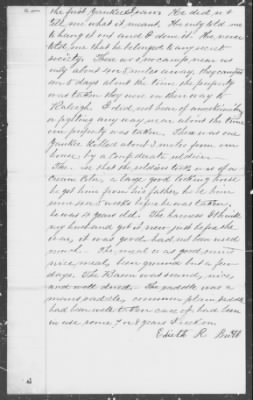 the first Yankees came. He did not
tell me what it meant. He only told me
to hang it out and I done it. He never
told me that he belonged to any secret
society. There was no camp near us
only about some miles away, they camped
on 5 days about the time the property
was taken they were on their way to
Raleigh. I did not hear of a
a fighting any way near about the time
our property was taken. There was one
Yankee killed about 3 miles from our
house by a Confederate soldier.
The that the soldiers took was of a
Cream Color, a large good looking horse
he got him from his father, he be him
weeks before he was taken,
he was 9 years old. The harness I think
my husband got it new just before the
war, it was good, had not been used
much. The meal was good,
nice meal, been ground but a few
days. The Bacon was sound, nice,
and well dried. The saddle was a
mans saddle, common plain saddle
had been well taken care of, had been
in use some 7 or 8 years I reckon.
Edieth R. Britt